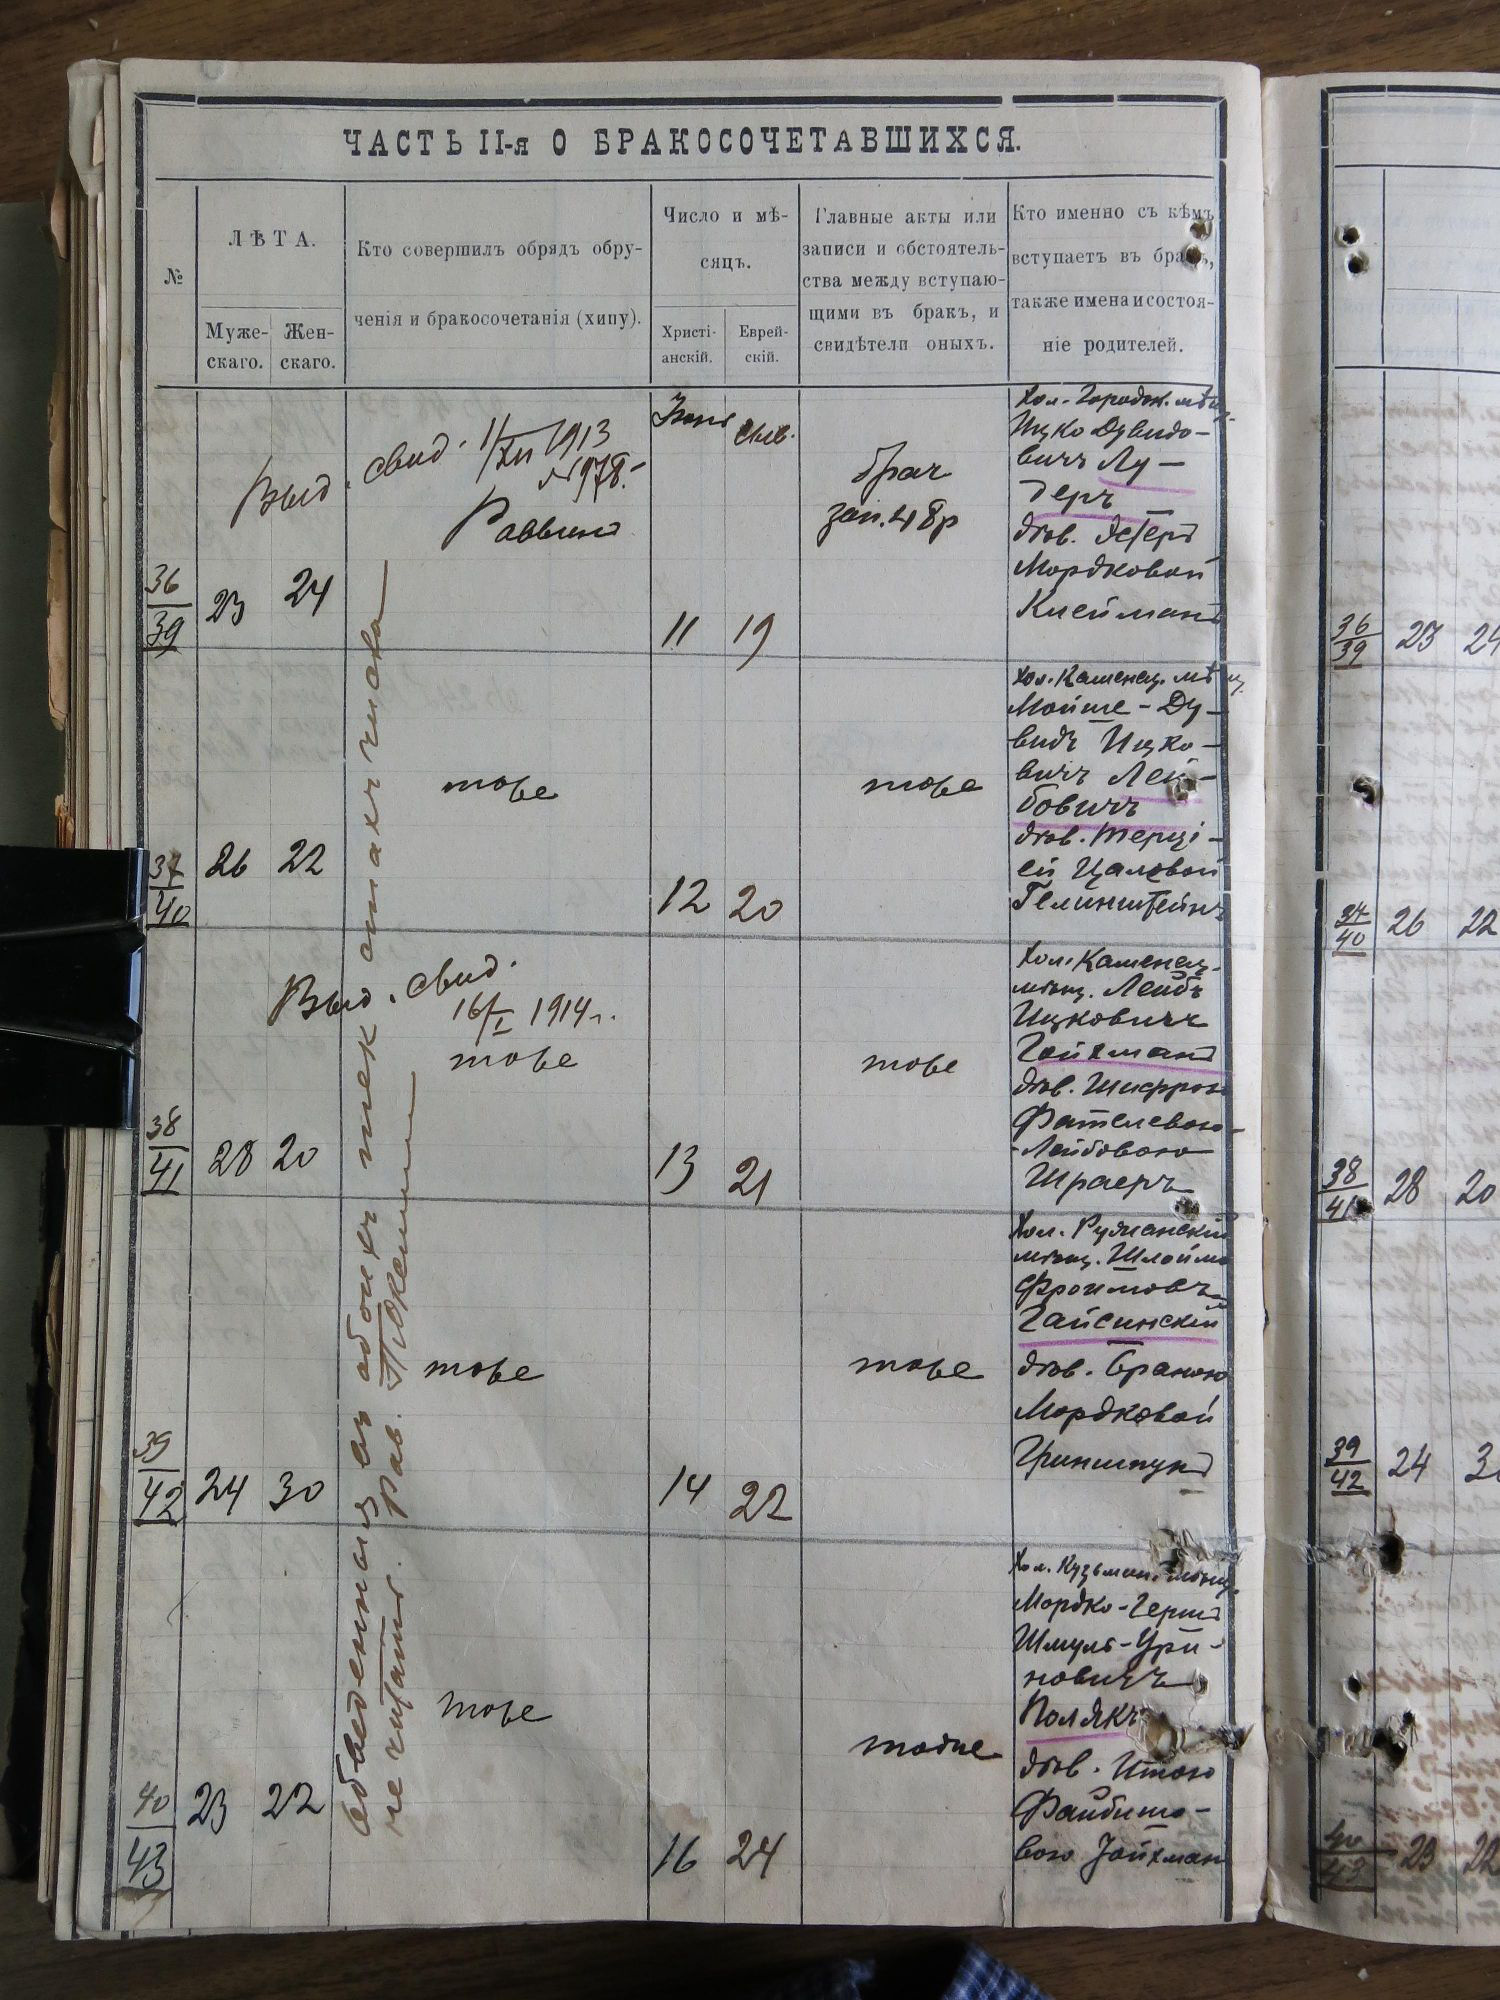 ЧАСТЬ II-я О БРАКОСОЧЕТАВШИХСЯ.
№
ЛѢТА.
Муже-
скаго.
Жен-
скаго.
Кто совершилъ обрядъ обру-
ченія и бракосочетанія (хипу).
Число и мѣ-
сяцъ.
Христі-
анскій.
Еврей-
скій.
Главные акты или
записи и обстоятель-
ства между вступаю-
щими въ бракъ, и
свидѣтели оныхъ.
Кто именно съ кѣмъ
вступаетъ въ бракъ,
также имена и состоя-
ніе родителей.
36
39
23
24
Выд. свид. 1/XII 1913
№978.
Раввинъ
11
19
брач
зап. 48р
Хол. Городок. мѣщ.
Ицко Дувидо-
вичъ Лу-
деръ
дѣв.
Мордковой
Клейманъ
37
40
26
22
тоже
12
20
тоже
Хол. Каменец. мѣщ.
Мойше-Ду-
видъ Ицко-
вичъ Лей-
бовичъ
дѣв.
ей Цаловой
38
41
28
20
Выд. свид.
16/I 1914 г.
тоже
13
21
тоже
Хол. Каменец.
мѣщ. Лейбъ
Ицковичъ
Гойхманъ
дѣв. Шифрою
Лейбовою
Шраеръ
39
42
24
30
тоже
14
22
тоже
Хол.
мѣщ. Шлойма
Фроимовъ
Гайсинскій
дѣв. Браною
Мордковой
Гриншпунъ
40
43
23
22
тоже
16
24
тоже
Хол. Кузьмин. мѣщ.
Мордко-Герш
Шмуль-Ури-
новичъ
Полякъ
дѣв. Итою
Файбиш-
вою Гойхман
обведенныя въ обоихъ
не читать. Рав.
36
39
23
24
37
40
26
22
38
41
28
20
39
42
24
40
43
23
22